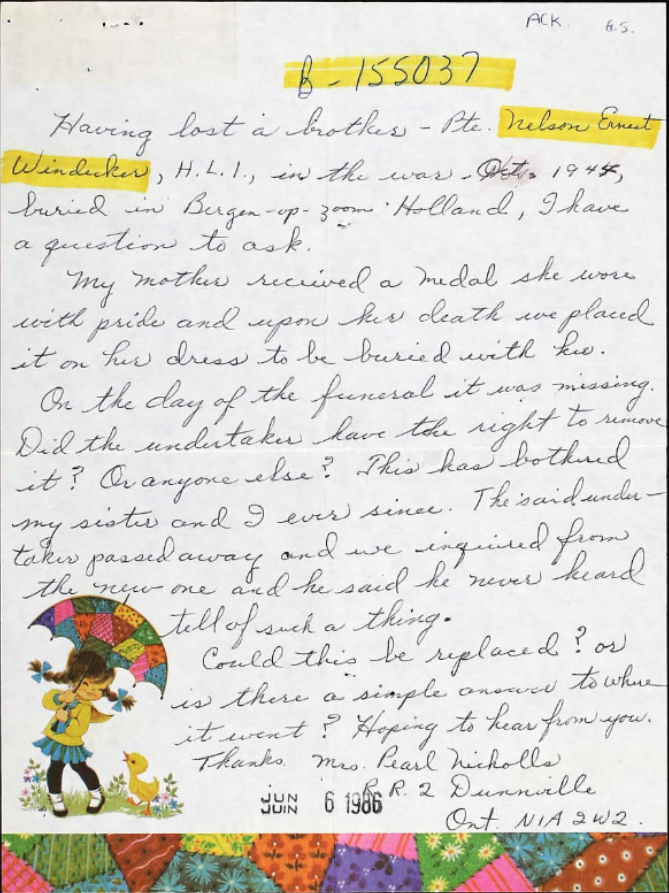 ACK. G.S.
B-155037
Having lost a brother - Pte. Nelson Ernest
Windecker, H.L.I., in the war. Oct. 1944,
buried in Bergen-op-zoom Holland, I have
a question to ask.
My mother received a medal she wore
with pride and upon her death we placed
it on her dress to be buried with her.
On the day of the funeral it was missing.
Did the undertaker have the right to remove
it? Or anyone else? This has bothered
my sister and I ever since. The said under-
taker passed away and we inquired from
the new one and he said he never heard
tell of such a thing.
Could this be replaced? or
is there a simple answer to where
it went? Hoping to hear from you.
Thanks. Mrs. Pearl Nicholls
R.R. 2 Dunnville
JUN
JUIN 6 1986
Ont. N1A 2W2.